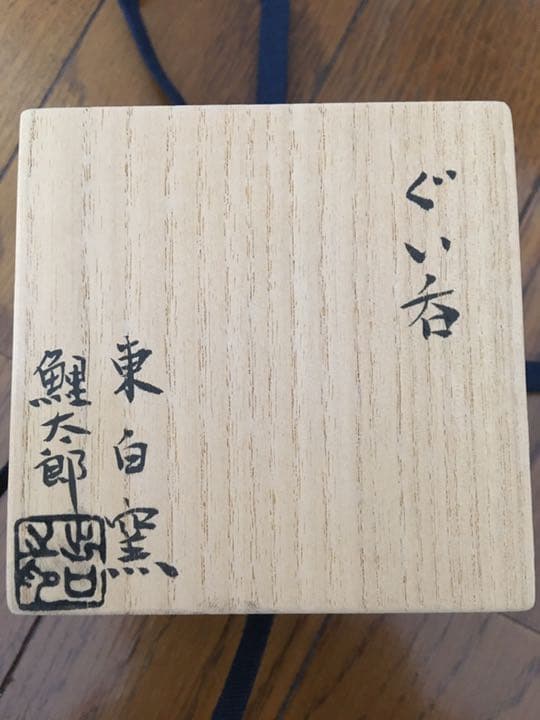 ぐい呑
東白窯
鯉太郎